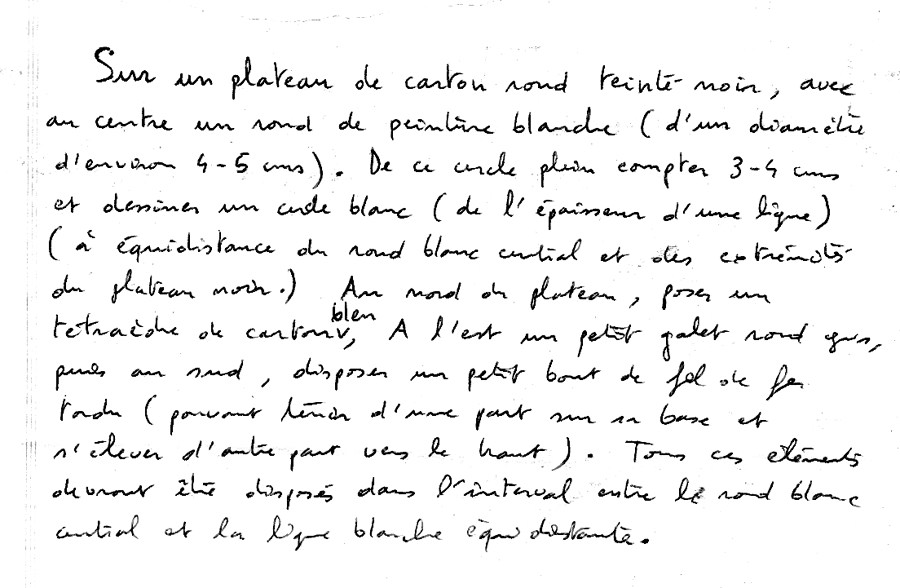 Sur un plateau de carton rond teinté noir, avec
au centre un rond de peinture blanche (d'un diamètre
d'environ 4-5 cms). De ce cercle plein compter 3-4 cms
et dessiner un cercle blanc (de l'épaisseur d'une ligne)
(à équidistance du rond blanc central et des extrémités
du plateau noir.) Au nord du plateau, poser un
tétraèdre de carton bleu, A l'est un petit galet rond gris,
puis au sud, disposer un petit bout de fil de fer
tordu (pouvant tenir d'une part sur sa base et
s'élever d'autre part vers le haut). Tous ces éléments
devront être disposés dans l'interval entre le rond blanc
central et la ligne blanche équidistante.